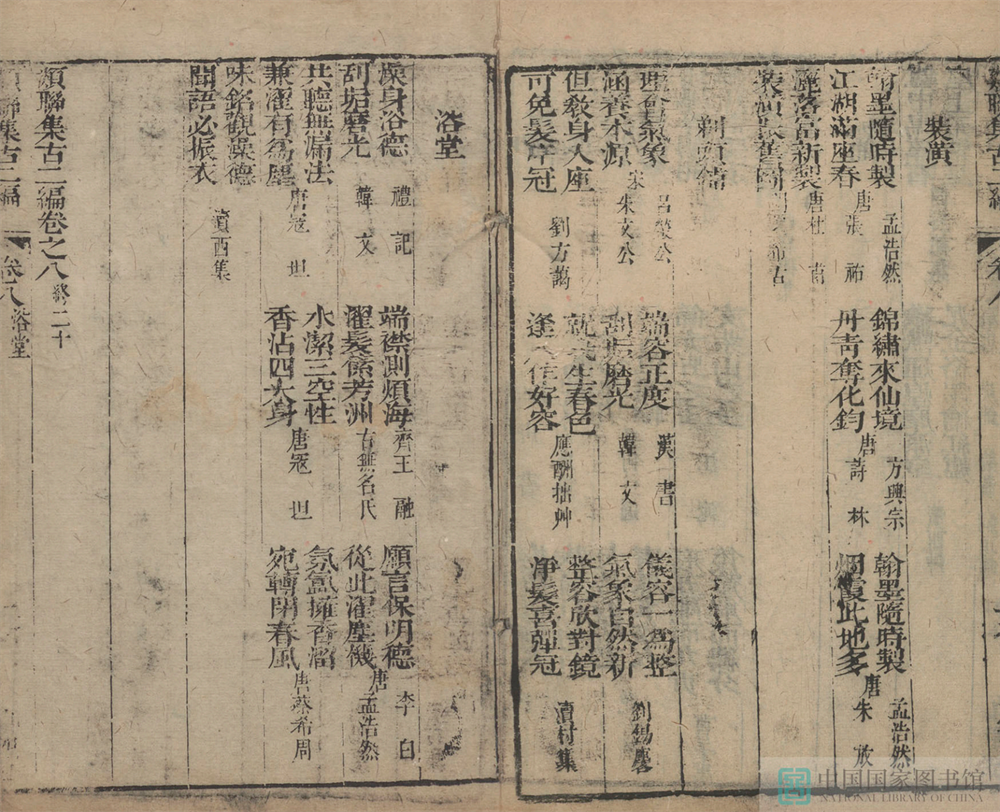 裝潢
翰墨隨時製 孟浩然
江湖滿座春 唐張祜
錦繡來仙境 方興宗
丹青奪化鈞 唐詩林
翰墨隨時製 孟浩然
烟霞此地多 唐朱放
落富新製 唐杜甫
剃頭鋪
氣象 呂榮公
涵養本源 宋朱文公
端容正度 漢書
刮垢磨光 韓文
儀容一為整 劉錫麐
氣象自然新
但教身入座
可免髮冲冠 劉方藹
就我生春色
逢人作好容 應酬拙艸
整容欣對鏡
淨髮喜彈冠 瀆村集
浴堂
澡身浴德 禮記
刮垢磨光 韓文
端襟測煩海 齊王融
濯髮傃芳洲 古無名氏
願言保明德 李白
從此濯塵機 唐孟浩然
共聽無漏法
兼濯有為塵 唐寇坦
水潔三空性
香沾四大身 唐寇坦
氛氳擁香溜
宛轉閉春風 唐蔡希周
味銘觀澡德
聞語必振衣 瀆西集
類聯集古二編卷之八終 二十
卷八 浴堂
中国国家图书馆
NATIONAL LIBRARY OF CHINA